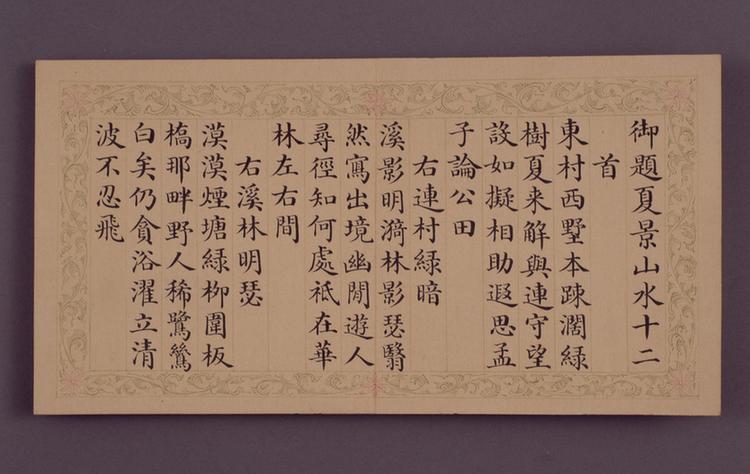 御題夏景山水十二
首
東村西墅本踈濶綠
樹夏来解與連守望
設如擬相助遐思孟
子論公田
右連村綠暗
溪影明漪林影瑟翳
然寫出境幽閒遊人
尋徑知何處祇在華
林左右間
右溪林明瑟
漠漠煙塘綠栁圍板
橋那畔野人稀鷺鷥
白矣仍貪浴濯立清
波不忍飛